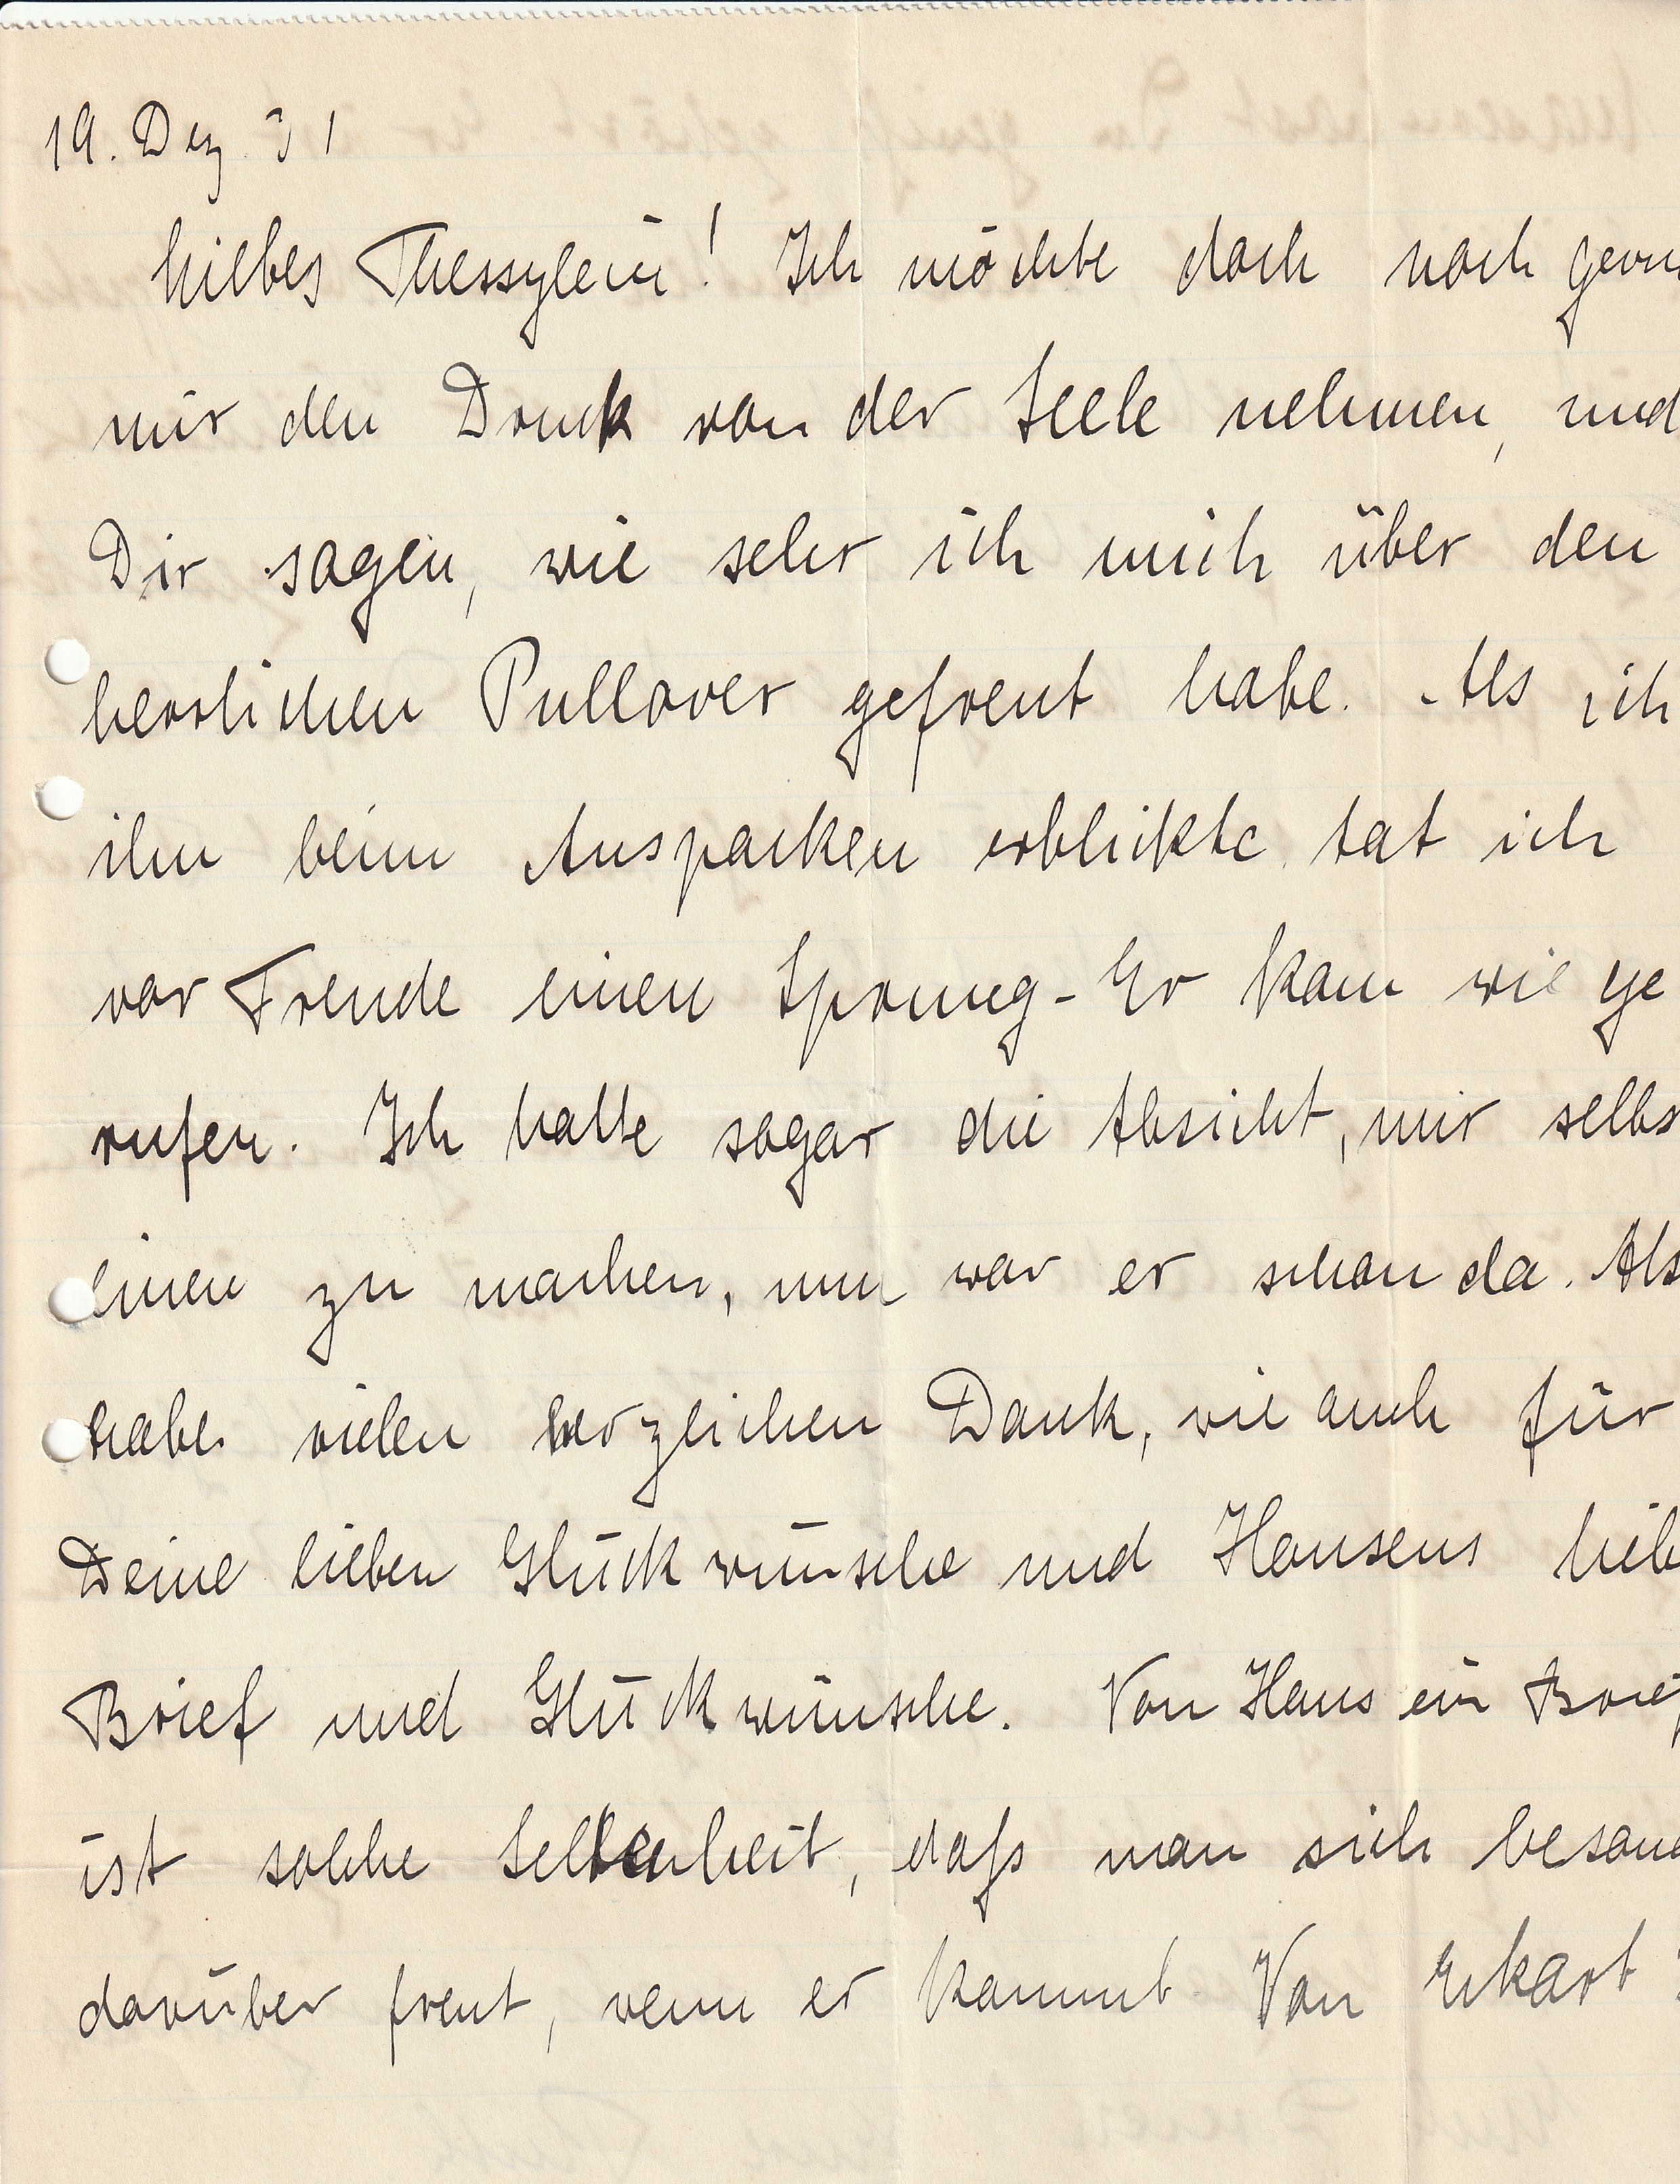 19. Dez. 31
Liebes Thessylein! Ich möchte doch noch gern
mir den Druck von der Seele nehmen, und
Dir sagen, wie sehr ich mich über den
herrlichen Pullover gefreut habe. Als ich
ihn beim Auspacken erblickte, tat ich
vor Freude einen Sprung - Er kam wie ge
rufen. Ich hatte sogar die Absicht, mir selbs
einen zu machen, nun war er schon da. Als
habe vielen herzlichen Dank, wie auch für
Deine lieben Glückwünsche und Hansens lieb
Brief und Glückwünsche. Von Hans ein Brief
ist solche Seltenheit, dass man sich beson
darüber freut, wenn er kommt. Von Ekart